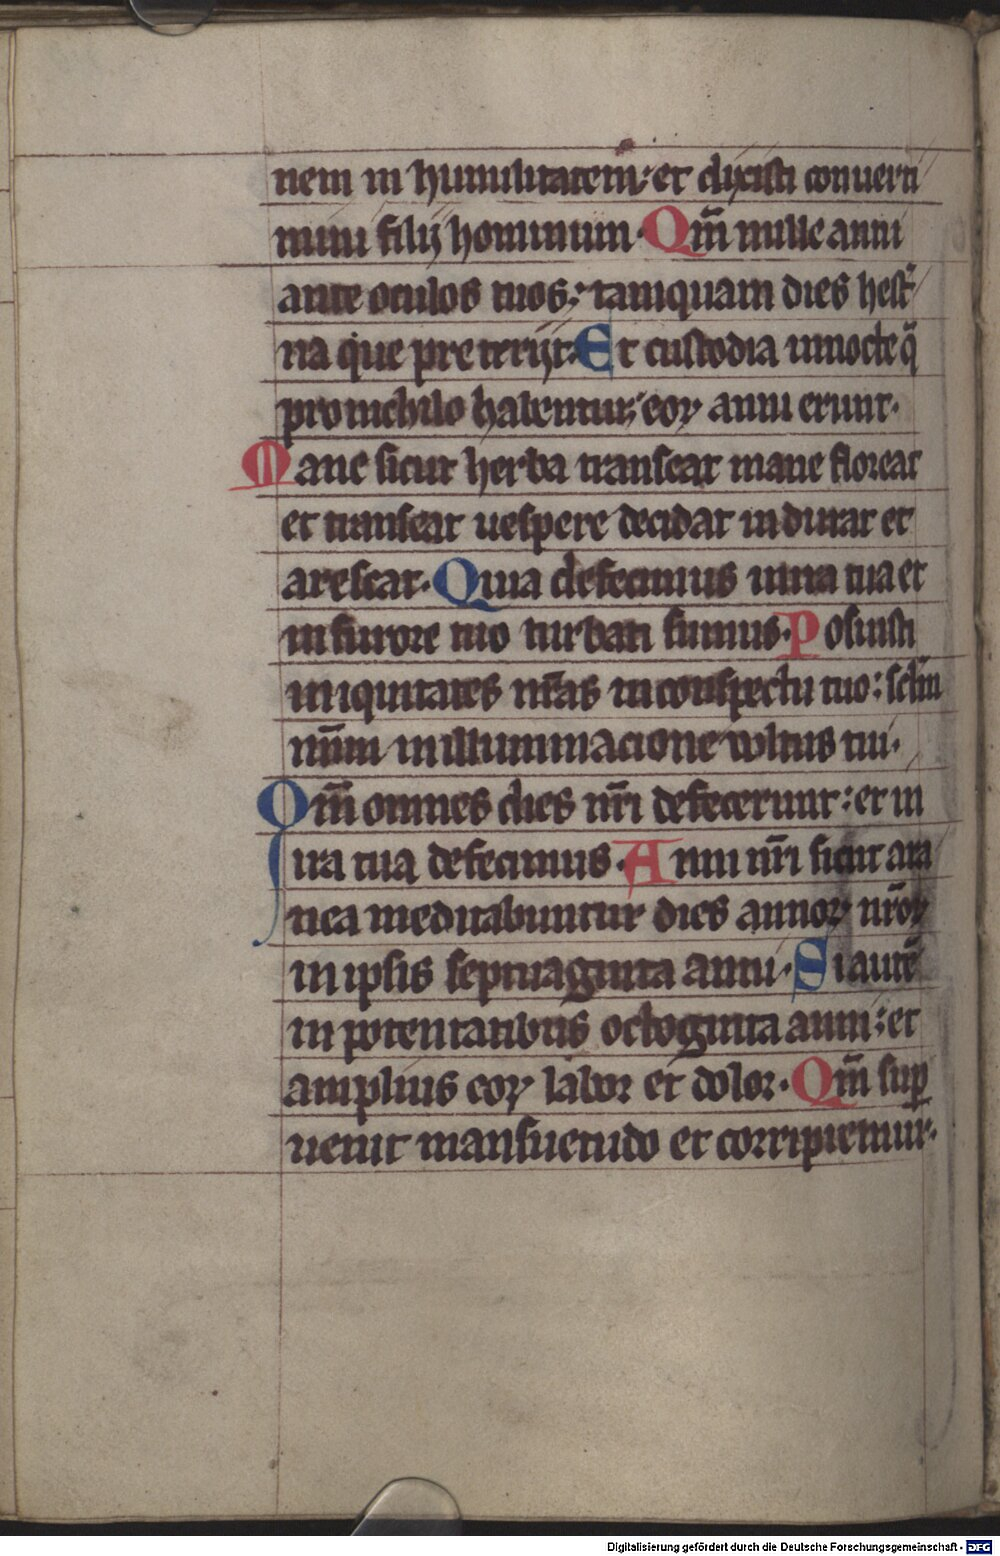 nem in humilitatem: et dixisti conuerti
mini filij hominum. Qm̄ mille anni
ante oculos tuos: tamquam dies hest̾
na que preterijt. Et custodia in nocte q̄
pro nichilo habentur: eoꝝ anni erunt.
Mane sicut herba transeat mane floreat
et transeat uespere decidat induret et
arescat. Quia defecimus in ira tua et
in furore tuo turbati sumus. Posuisti
iniquitates nr̄as in conspectu tuo: sc̄lm
nr̄m in illuminacione wltus tui.
Qm̄ omnes dies nr̄i defecerunt: et in
ira tua defecimus. Anni nr̄i sicut ara
nea meditabuntur dies annoꝝ nr̄oꝝ
in ipsis septuaginta anni. Si autē
in potentatibus octoginta anni: et
amplius eoꝝ labor et dolor. Qm̄ suꝑ
uenit mansuetudo et corripiemur.
Digitalisierung gefördert durch die Deutsche Forschungsgemeinschaft - DFG